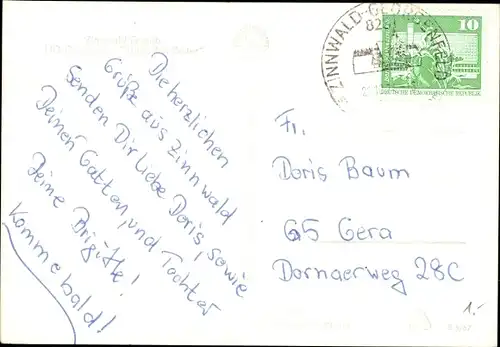 Die herzlichen
Grüße aus Zinnwald
senden Dir liebe Doris, sowie
Deinen Gatten, und Tochter
Deine Brigitte!
Komme bald!
ZINNWALD-GEORGENFELD
10
DEUTSCHE DEMOKRATISCHE REPUBLIK
Fr.
Doris Baum
65 Gera
Dornaerweg 28C
1.-